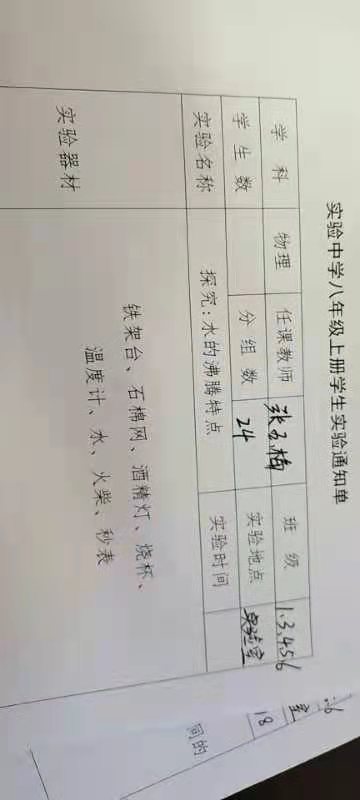 实验中学八年级上册学生实验通知单
学科 物理 任课教师 张玉梅 班级 1.3.4.5.6
学生数 分组数 24 实验地点 实验室
实验名称 探究:水的沸腾特点 实验时间
实验器材 铁架台、石棉网、酒精灯、烧杯、
温度计、水、火柴、秒表
室
18
间的